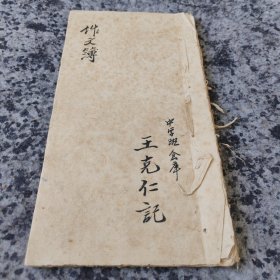 作文簿
中学班会库
王克仁記